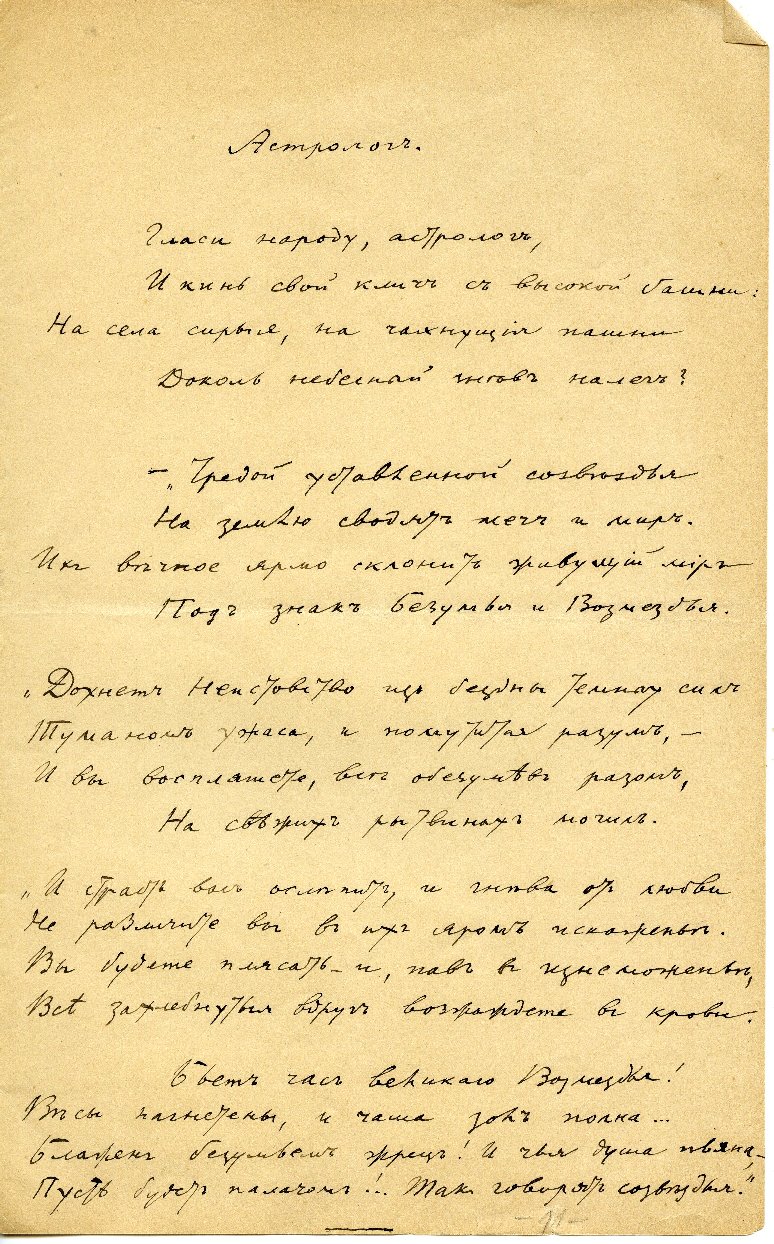 Астрологъ.
Гласи народу, астрологъ,
И кинь свой кличъ съ высокой башни:
На села сирыя, на чахнущія пашни
Доколь небесный гнѣвъ налегъ?
— „Чредой уставленной созвѣздья
На землю сводятъ мечъ и миръ.
Ихъ вѣчное ярмо склонитъ живущій міръ
Подъ знакъ Безумья и Возмездья.
„Дохнетъ Неистовство изъ бездны темныхъ силъ
Туманомъ ужаса, и помутится разумъ, —
И вы воспляшете, всѣ обезумѣвъ разомъ,
На свѣжихъ рытвинахъ могилъ.
„И страсть васъ ослѣпитъ, и гнѣва отъ любви
Не различите вы въ ихъ яромъ искаженьѣ.
Вы будете плясать — и, павъ въ изнеможеньѣ,
Всѣ захлебнуться вдругъ возжаждете въ крови.
Бьетъ часъ великаго Возмездья!
Вѣсы нагнетены, и чаша золъ полна...
Блаженъ безумьемъ жрецъ! И чья душа пьяна, —
Пусть будетъ палачомъ!.. Такъ говорятъ созвѣздья."